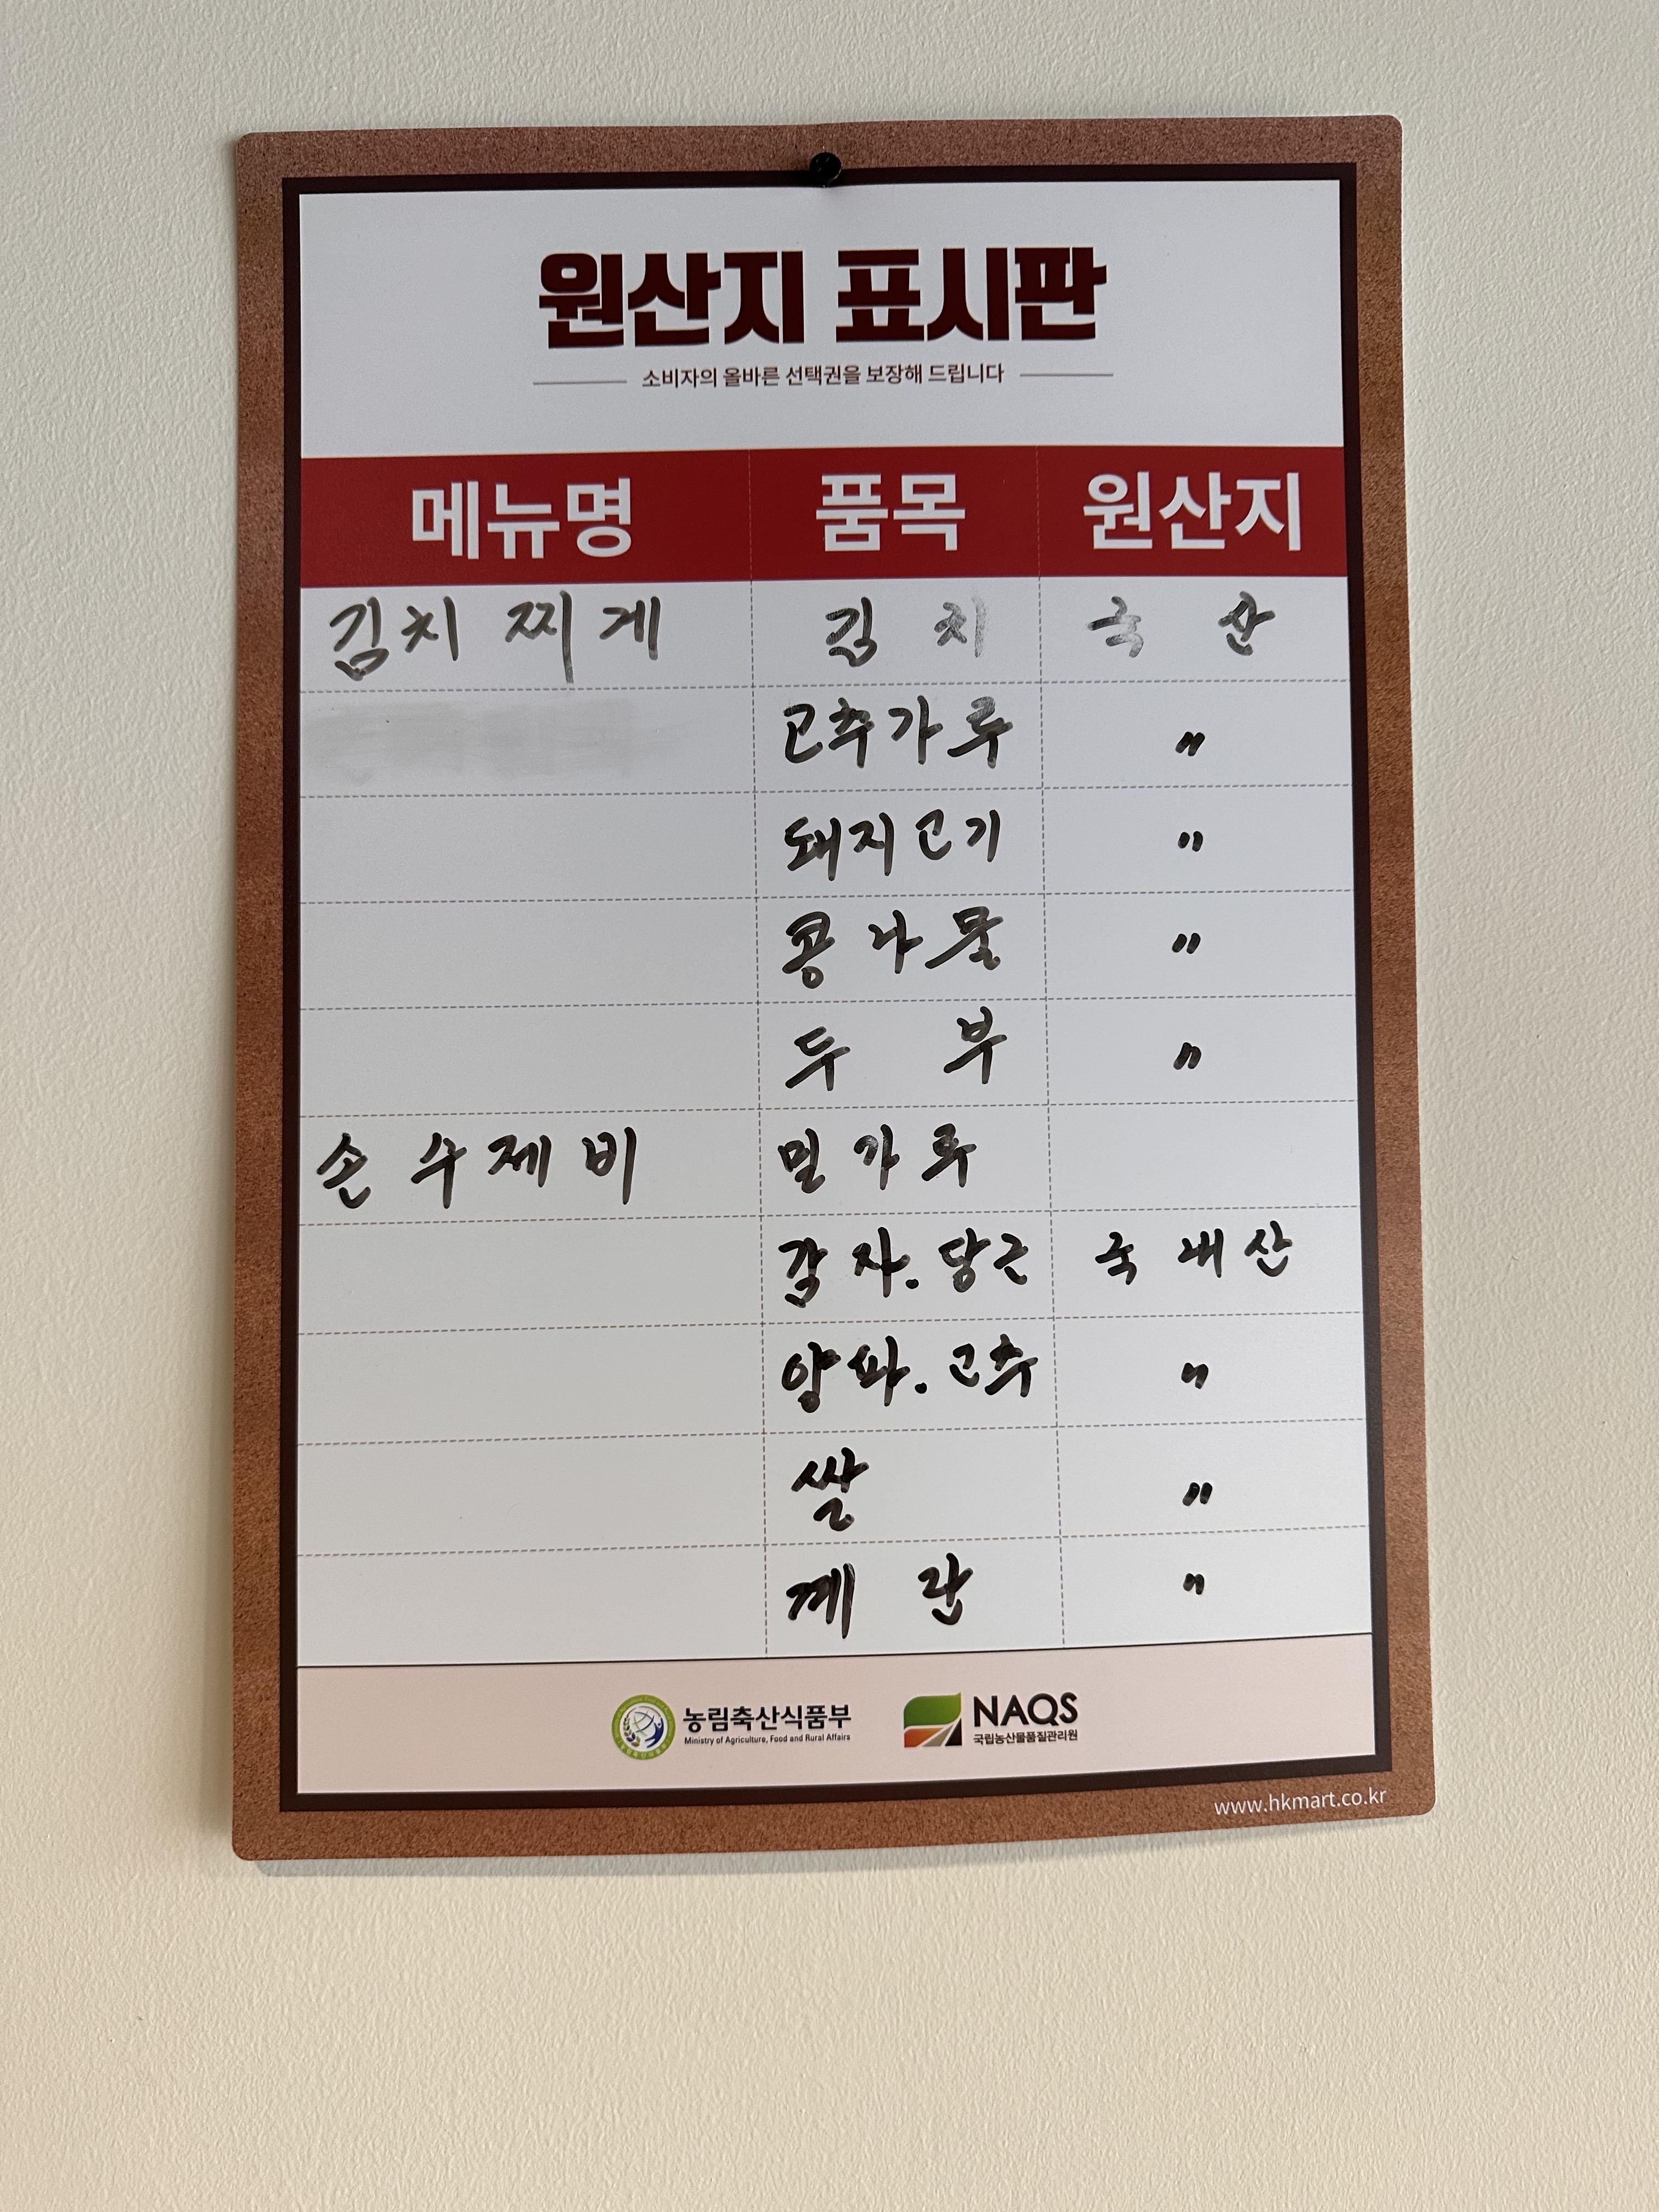 원산지 표시판
소비자의 올바른 선택권을 보장해 드립니다
메뉴명 품목 원산지
김치 찌게 김치 국산
고추가루 〃
돼지고기 〃
콩나물 〃
두부 〃
손 수제비 밀가루
감자.당근 국내산
양파.고추 〃
쌀 〃
계란 〃
농림축산식품부 NAQS
Ministry of Agriculture, Food and Rural Affairs 국립농산물품질관리원
www.hkmart.co.kr